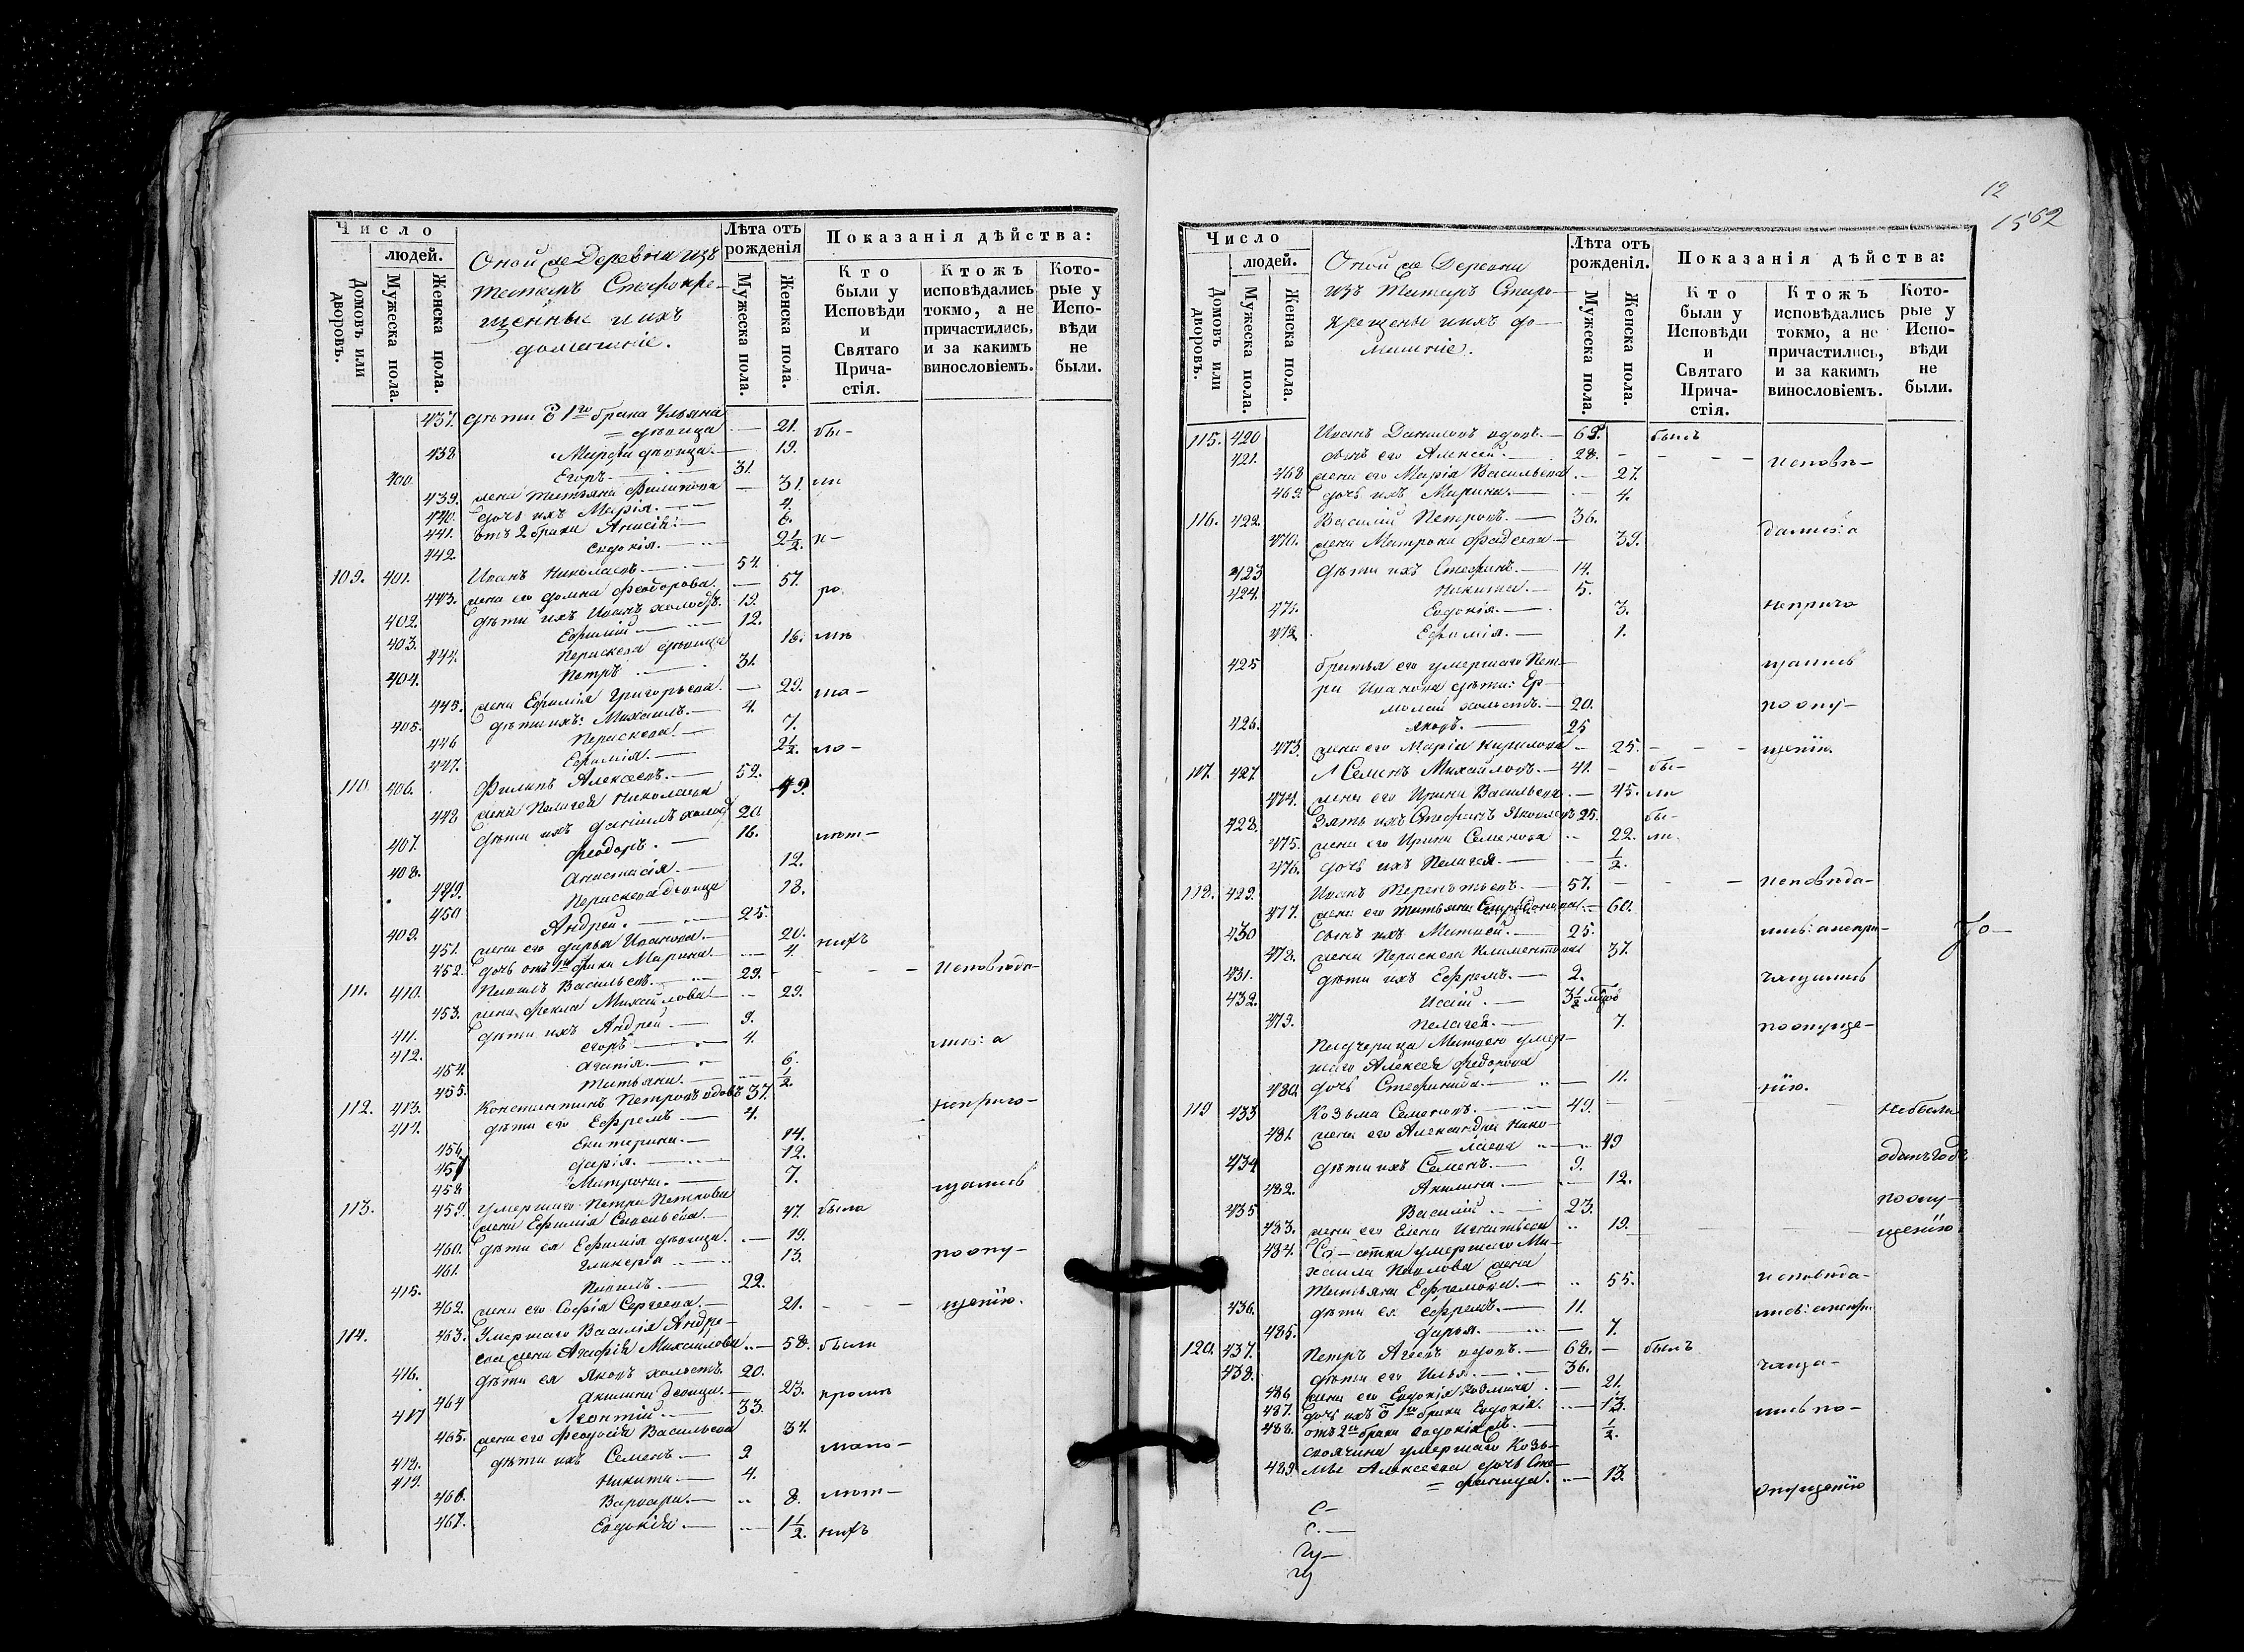 Число
людей.
Домовъ или дворовъ.
Мужеска пола.
Женска пола.
Оной же Деревни изъ
татаръ Старокре-
щенные и ихъ
домашніе.
Лѣта отъ рожденія
Мужеска пола.
Женска пола.
Показанія дѣйства:
Кто были у Исповѣди и Святаго Прича-стія.
Ктожъ исповѣдались токмо, а не причастились, и за какимъ винословіемъ.
Кото-рые у Испо-вѣди не были.
437. дѣти 1го брака Ульяна
= дѣвица — 21. бы-
438 Марфа дѣвица — 19.
400 Егоръ — 31.
439. жена Татьяна Филипова — 31. ли
440. дочь ихъ Марія. — 4.
441. отъ 2 брака Анисія — 6.
442. Евдокія. — 2½. и-
109. 401. Иванъ Николаевъ — 54.
443. жена его Домна Феодорова. — 57.
402. дѣти ихъ Иванъ холостъ. 19. ро
403. Ефимій — 12.
444. Параскева дѣвица 16. мѣ
404. Петръ — 31.
445. жена Ефимія Григорьева. — 29. ма-
405. дѣти ихъ: Михаилъ. — 4.
446 Параскева. — 7.
447. Ефимія. — 2½. ло-
110. 406. Филипъ Алексеевъ. — 52.
448 жена Пелагея Николаева 49.
407. дѣти ихъ Даніилъ холос 20.
408. Феодоръ. — 16. лѣт-
449. Анастасія — 12.
450 Параскева девица 18.
409. Андрей. — 25.
451. жена его Дарья Иванова. — 20.
452. дочь отъ 1го брака Марина — 4. нихъ
111. 410. Павилъ Васильевъ. — 29. — — — исповѣда-
453. жена Фекла Михайлова — 29.
411. дѣти ихъ Андрей. — 9.
412. егоръ — 4. лис: а
454. Агапія. — 6.
455. Татьяна. — ½.
112. 413. Константинъ Петровъ вдовъ 37.
414. дѣти его Ефремъ — 4. неприча-
456 Екатерина. — 14.
457 Дарія. — 12.
458 Матрона. — 7. щались
113. 459. умершаго Петра Петрова
жена Ефимія Савельева. — 47 была
460. дѣти ея Ефимія дѣвица. — 19.
461. Гликерія — 13. поопу-
415. Павилъ. — 22.
462. жена его Софія Сергеева. — 21. — — щенію.
114. 463. Умершаго Василія Андре-
ева жена Агафія Михаилова — 58. были
416. дѣти ея Яковъ холостъ. 20.
464 Акилина девица. — 23. кромѣ
417 Леонтій — 33.
465. жена его Феодосія Васильева 34.
418. дѣти ихъ Семенъ — 2 мало-
419. Никита. — 4.
466. Варвара. — 8. лѣт-
467. Евдокія — 1½. нихъ
12
1562
Число
людей.
Домовъ или дворовъ.
Мужеска пола.
Женска пола.
Оной же Деревни
изъ Татаръ Старо-
крещены и ихъ до-
машніе.
Лѣта отъ рожденія.
Мужеска пола.
Женска пола.
Показанія дѣйства:
Кто были у Исповѣди и Святаго Прича-стія.
Ктожъ исповѣдались токмо, а не причастились, и за какимъ винословіемъ.
Кото-рые у Испо-вѣди не были.
115. 420 Иванъ Даниловъ вдовъ. — 69. былъ
421. сынъ его Алексей. — 28. — — — исповѣ-
468 жена его Марія Васильева — 27.
469. дочь ихъ Марина. — 4.
116. 422. Василій Петровъ. — 36.
470. жена Матрона Фадеева — 39. дались: а
423 дѣти ихъ Стефанъ. — 14.
424. Никита. — 5.
471. Евдокія. — 3. неприча
472 Ефимія. — 1.
425 братья его умершаго Пет-
ра Иванова дѣти: Ер-
молай холостъ. — 20.
щались
поопу-
426. Яковъ. — 25
473. жена его Марія Кирилова — 25. — — — щенію.
117. 427. Семенъ Михайловъ. — 41. — бы-
474. жена его Ирина Васильева. — 45. ли
428. Зять ихъ Стефанъ Яковлевъ 25. бы-
475. жена его Ирина Семенова 22. ли.
476. дочь ихъ Пелагея. — ½.
118. 429. Иванъ Терентьевъ. — 57. — — — исповѣда-
477. жена его Татьяна Спиридонова — 60.
430 сынъ ихъ Матвей. — 25. лись: анепри-
478. жена Параскева Климентова 37.
431. дѣти ихъ Ефремъ. — 2. чащались
432. — 3½
479. Пелагея. — 7. поопуще-
Падчерица Матвею умер-
шаго Алексея Федорова
480. дочь Стефанида. — 11. нію.
119 433 Козьма Семеновъ. — 49. — — — небыли
481. жена его Александра Нико-
= лаева — 49
434 дѣти ихъ Семенъ. — 9. одинъ годъ
482. Акилина. — 12.
435 Василій — 23. поопу-
483. жена его Елена Игнатьева 19. — — — щенію
484. умершаго Ми-
хаила Павлова жена
Татьяна Ефремова. — 55. исповѣда-
436. дѣти ея Ефремъ. — 11. лись: анепри
485. Дарья. — 7.
120. 437. Петръ Агеевъ вдовъ. — 68. — былъ
438. дѣти его Илья. — 36. чаща-
486 жена его Евдокія Козмина. — 21.
487. дочь ихъ 1го брака Евдокія. — 13. лись по-
488. отъ 2го брака Евдокія — ½.
своячина умершаго Козь-
489. мы Алексеева дочь Сте-
= фанида. — 13. опущенію